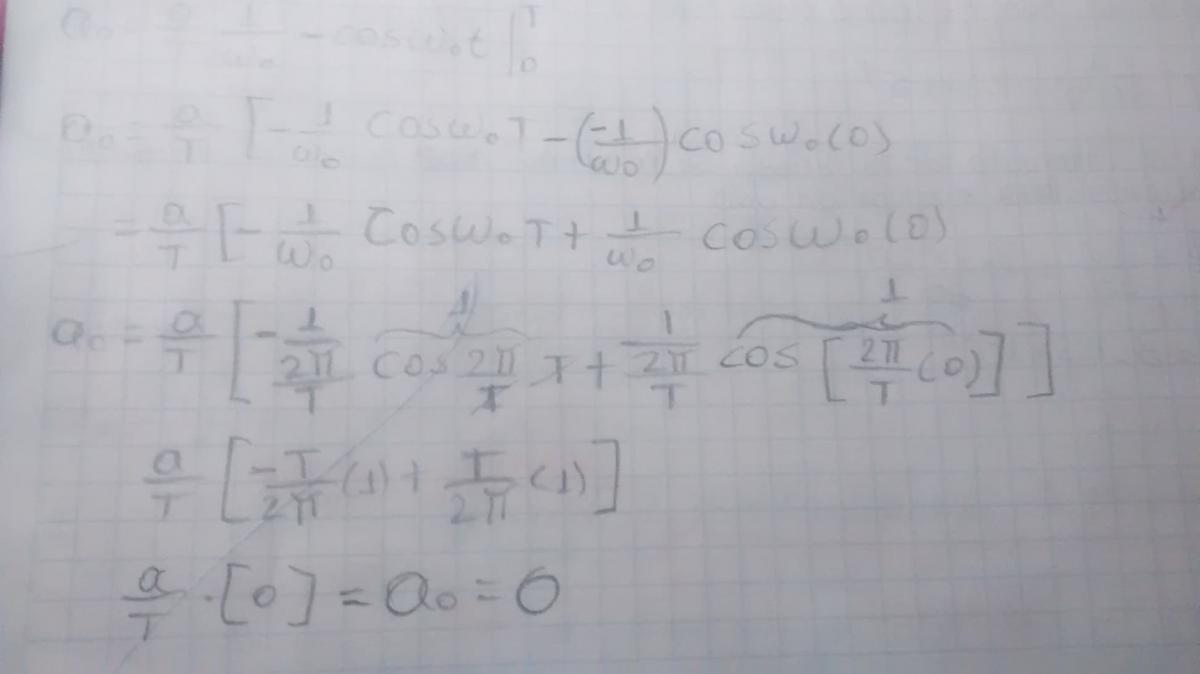 a₀ = a/T 1/ω₀ - cosω₀t |₀ᵀ
a₀ = a/T [- 1/ω₀ cosω₀T - (-1/ω₀) cosω₀(0)
= a/T [- 1/ω₀ Cosω₀T + 1/ω₀ cosω₀(0)
1 1
a₀ = a/T [- 1/(2π/T) cos 2π/T T + 1/(2π/T) cos [2π/T (0)]]
a/T [-T/2π (1) + T/2π (1)]
a/T · [0] = a₀ = 0